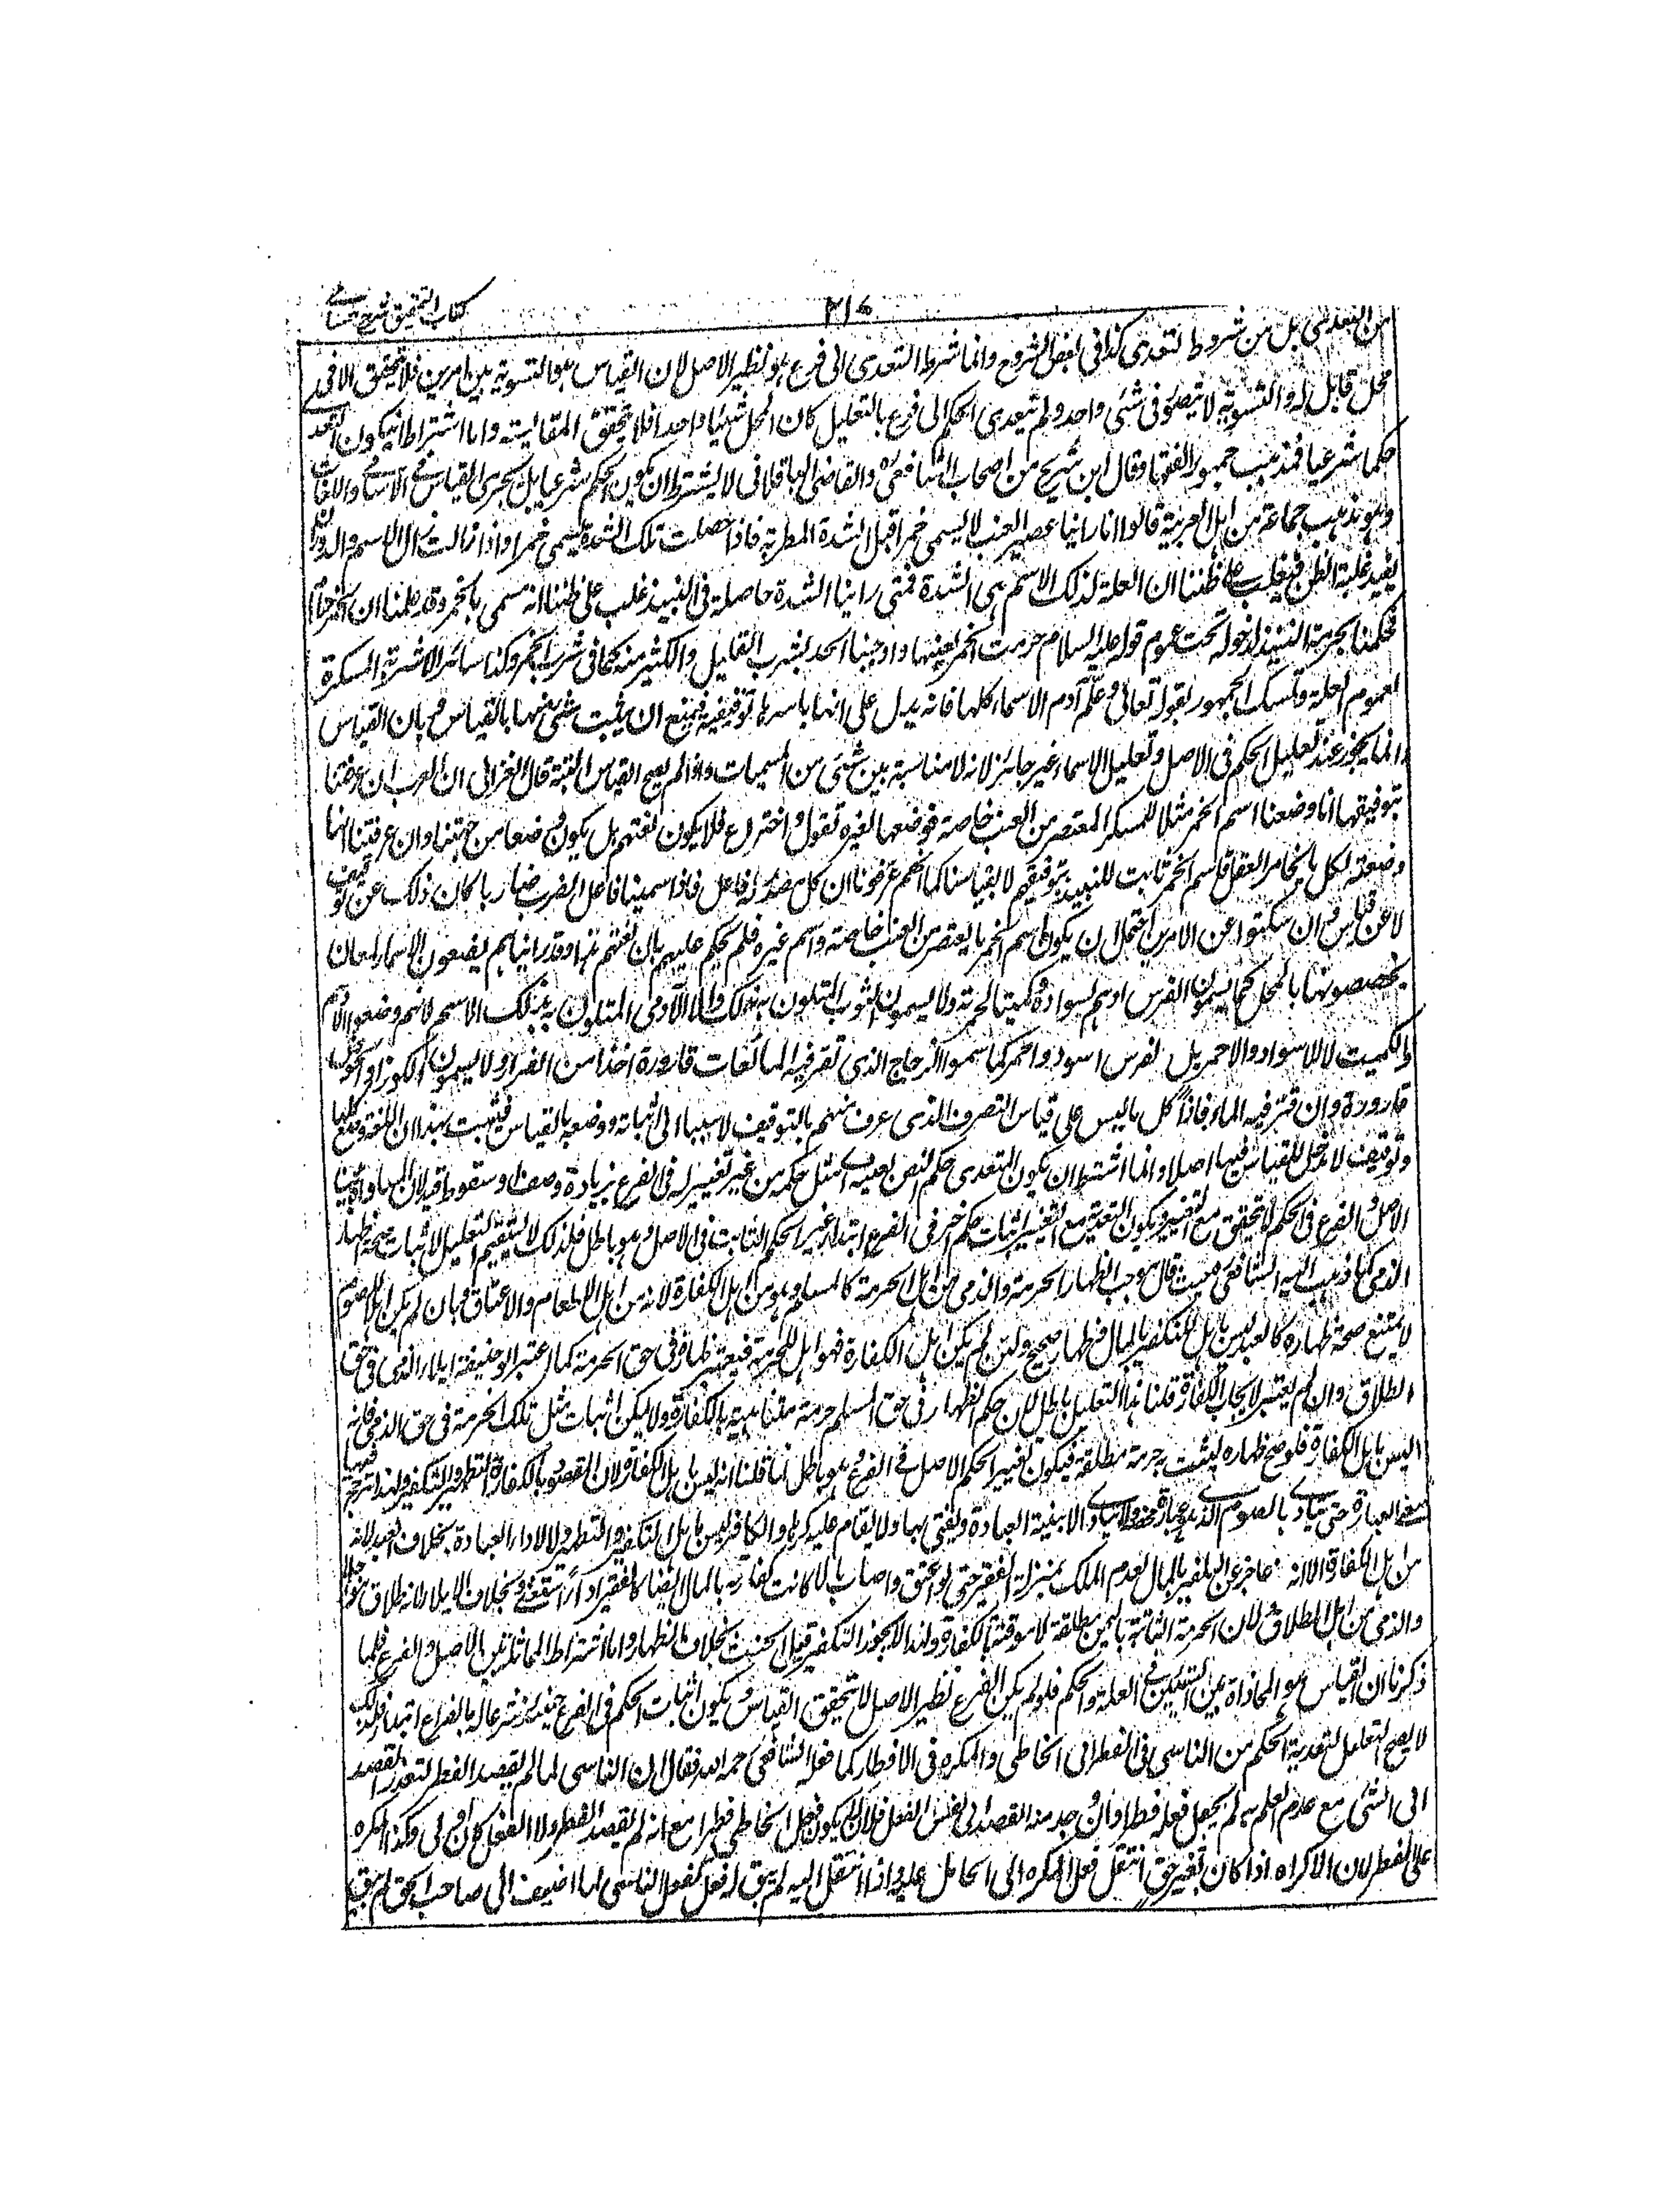 كتاب التحقيق شرح حسامى
٣١٧
من التعدى بل من شروط التعدى كذا فى بعض الشروح وانما شرط التعدى الى فرع هو نظير الاصل لان القياس هو التسوية بين امرين فلا يتحقق الا فى
محل قابل له والتسوية لا يتصور فى شئى واحد ولم يتعدى الحكم الى فرع بالتعليل كان المحل شيئا واحدا فلا يتحقق المقائيسة واما اشتراط ان يكون التعدى
حكما شرعيا فمذهب جمهور الفقها وقال ابن شريح من اصحاب الشافعى والقاضى الباقلانى لا يشترط ان يكون الحكم شرعيا بل يجرى القياس فى الاسامى واللغات
وهو مذهب جماعة من اهل العربية قالوا انا راينا عصير العنب لا يسمى خمرا قبل الشدة المطربة فاذا حصلت تلك الشدة يسمى خمرا واذا زالت زال الاسم والدوران
يفيد غلبة الظن فيغلب على ظننا ان العلة لذلك الاسم هى الشدة فمتى راينا الشدة حاصلة فى النبيذ غلب على ظننا انه مسمى بالخمر وقد علمنا ان الخمر حرام
فحكمنا بحرمة النبيذ لدخوله تحت عموم قوله عليه السلام حرمت الخمر لعينها واوجبنا الحد بشرب القليل والكثير منه كما فى شرب الخمر وكذا سائر الاشربة المسكرة
لعموم العلة وتمسك الجمهور بقوله تعالى وعلّم آدم الاسماء كلها فانه يدل على انها باسرها توقيفية فيمتنع ان يثبت شئى منها بالقياس وبان القياس
انما يجوز عند تعليل الحكم فى الاصل وتعليل الاسماء غير جائز لانه لا مناسبة بين شئى من المسميات واذا لم يصح القياس البتة قال الغزالى ان العرب ان عرفتنا
بتوقيفها انا وضعنا اسم الخمر مثلا للمسكر المعتصر من العنب خاصة فوضعها لغيره تقول واختراع فلا يكون لغتهم بل يكون وضعا من جهتنا وان عرفتنا انها
وضعته لكل ما يخامر العقل فاسم الخمر ثابت للنبيذ بتوقيفهم لا بقياسنا كما انهم عرفونا ان كل مصدر له فاعل فاذا سمينا فاعل الضرب ضاربا كان ذلك عن توقيف
لا عن قياس وان سكتوا عن الامرين احتمل ان يكون اسم الخمر ما يعتصر من العنب خاصة واسم غيره فلم يحكم عليهم بان لغتهم هذا وقد رايناهم يضعون الاسم لمعان
يخصصونها بالمحل كما يسمون الفرس ادهم لسواده وكميتا لحمرته ولا يسمون الثوب المتلون بذلك ولا الآدمى المتلون بذلك الاسم لانهم وضعوا الادهم
والكميت لا للاسود والاحمر بل لفرس اسود واحمر كما سموا الزجاج الذى تقر فيه المائعات قارورة اخذا من القرار ولا يسمون الكوز او الحوض
قارورة وان قر فيه الماء فاذا كل ما ليس على قياس التصرف الذى عرف منهم بالتوقيف لا سبيل الى اثباته ووضعه بالقياس فيثبت بهذا ان اللغة وضع كلها
وتوقيف لا مدخل للقياس فيها اصلا وانما اشترط ان يكون التعدى حكم النص بعينه اى مثل حكمه من غير تغيير له فى الفرع بزيادة وصف او سقوط قيد لان المساواة بين
الاصل والفرع فى الحكم لا يتحقق مع التغيير ويكون التعدية مع التغيير اثبات حكم اخر فى الفرع ابتداء غير الحكم الثابت فى الاصل وهو باطل فلذلك لا يستقيم التعليل لاثبات صحة ظهار
الذمى كما ذهب اليه الشافعى حيث قال موجب الظهار الحرمة والذمى من اهل الحرمة كالمسلم وهو من اهل الكفارة لانه من اهل الاطعام والاعتاق فبان لم يكن اهلا للصوم
لا يمتنع صحة ظهاره كالعبد ليس باهل للتكفير بالمال فظهاره صحيح ولئن لم يكن اهل الكفارة فهو اهل للحرمة فيعتبر ظهاره فى حق الحرمة كما اعتبر ابو حنيفة ايلاء الذمى فى حق
الطلاق وان لم يعتبر لايجاب الكفارة قلنا هذا التعليل باطل لان حكم الظهار فى حق المسلم حرمة متناهية بالكفارة ولا يمكن اثبات مثل تلك الحرمة فى حق الذمى فانه
ليس باهل الكفارة فلو صح ظهاره ليثبت به حرمة مطلقة فيكون تغيير الحكم الاصل فى الفرع وهو باطل انما قلنا انه ليس باهل الكفارة لان المقصود بالكفارة التطهير والتكفير ولهذا ترجح فيها
معنى العبادة حتى يتادى بالصوم الذى هو عبادة محضة ولا يتادى الا بنية العبادة ويفتى بها ولا يقام عليه كرها والكافر ليس باهل التكفير والتطهير ولا لاداء العبادة بخلاف العبد لانه
من اهل الكفارة الا انه عاجز عن التكفير بالمال لعدم الملك بمنزلة الفقير حتى لو اعتق واصاب مالا كانت كفارته بالمال ايضا كالفقير اذا استغنى وبخلاف الايلاء لانه طلاق مؤجل
والذمى من اهل الطلاق ولان الحرمة الثابتة باليمين مطلقة لا موقتة بالكفارة ولهذا لا يجوز التكفير قبل الحنث بخلاف الظهار واما اشتراط المماثلة بين الاصل والفرع فلما
ذكرنا ان القياس هو المحاذاة بين الشيئين فى العلة والحكم فلو لم يكن الفرع نظير الاصل لا يتحقق القياس ويكون اثبات الحكم فى الفرع حينئذ شرعا له بالفرع ابتداء فلذلك
لا يصح التعليل لتعدية الحكم من الناسى فى الفطر الى الخاطى والمكره فى الافطار كما فعل الشافعى رحمه الله فقال ان الناسى لما لم يقصد الفطر لتعذر القصد
الى الشئى مع عدم العلم به لم يجعل فعله فطرا وان وجد منه القصد الى نفس الفعل فلان لا يكون فعل الخاطى فطرا مع انه لم يقصد الفطر ولا الفعل كان اولى وكذا المكره
على الفطر لان الاكراه اذا كان بغير حق انتقل فعل المكره الى الحامل عليه واذا انتقل اليه لم يبق له فعل كفعل الناسى لما اضيف الى صاحب الحق لم يبق